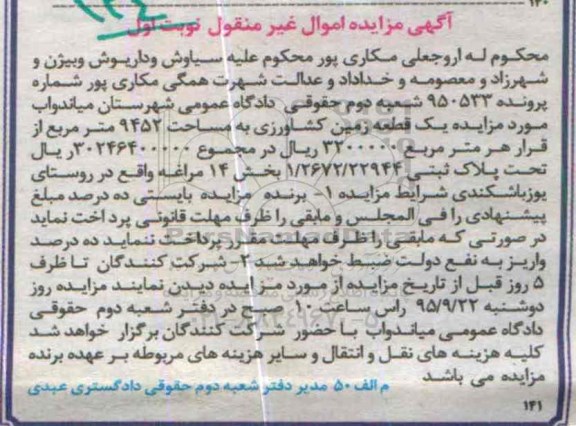 ۱۴۰
آگهی مزایده اموال غیر منقول نوبت اول
محکوم له اروجعلی مکاری پور محکوم علیه سیاوش وداریوش وبیژن و
شهرزاد و معصومه و خداداد و عدالت شهرت همگی مکاری پور شماره
پرونده ۹۵۰۵۳۳ شعبه دوم حقوقی دادگاه عمومی شهرستان میاندواب
مورد مزایده یک قطعه زمین کشاورزی به مساحت ۹۴۵۲ متر مربع از
قرار هر متر مربع ۳۲۰۰۰۰۰ ریال در مجموع ۳۰۲۴۶۴۰۰۰۰۰ ریال
تحت پلاک ثبتی ۱/۲۶۷۲/۲۲۹۴۴ بخش ۱۴ مراغه واقع در روستای
یوزباشکندی شرایط مزایده ۱- برنده مزایده بایستی ده درصد مبلغ
پیشنهادی را فی المجلس و مابقی را ظرف مهلت قانونی پرداخت نماید
در صورتی که مابقی را ظرف مهلت مقرر پرداخت ننماید ده درصد
واریز به نفع دولت ضبط خواهد شد ۲- شرکت کنندگان تا ظرف
۵ روز قبل از تاریخ مزایده از مورد مزایده دیدن نمایند مزایده روز
دوشنبه ۹۵/۹/۲۲ راس ساعت ۱۰ صبح در دفتر شعبه دوم حقوقی
دادگاه عمومی میاندواب با حضور شرکت کنندگان برگزار خواهد شد
کلیه هزینه های نقل و انتقال و سایر هزینه های مربوطه بر عهده برنده
مزایده می باشد
م الف ۵۰ مدیر دفتر شعبه دوم حقوقی دادگستری عبدی
۱۴۱
ParsNamadData